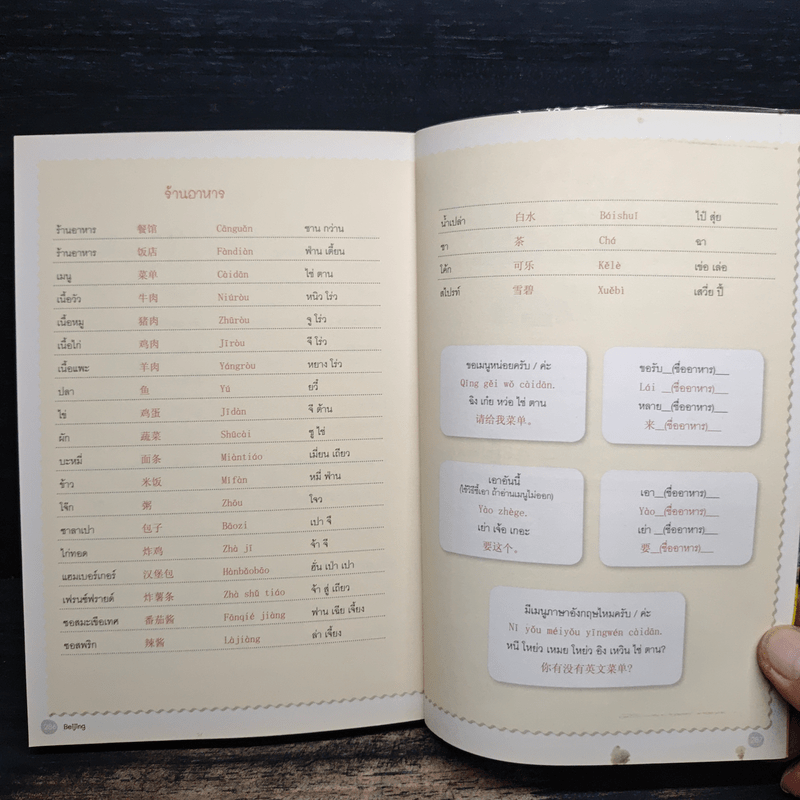 ร้านอาหาร
ร้านอาหาร 餐馆 Cānguǎn ชาน กว่าน
ร้านอาหาร 饭店 Fàndiàn ฟ่าน เตี้ยน
เมนู 菜单 Càidān ไช่ ตาน
เนื้อวัว 牛肉 Niúròu หนิว โร่ว
เนื้อหมู 猪肉 Zhūròu จู โร่ว
เนื้อไก่ 鸡肉 Jīròu จี โร่ว
เนื้อแพะ 羊肉 Yángròu หยาง โร่ว
ปลา 鱼 Yú ยวี๋
ไข่ 鸡蛋 Jīdàn จี ต้าน
ผัก 蔬菜 Shūcài ชู ไช่
บะหมี่ 面条 Miàntiáo เมี่ยน เถียว
ข้าว 米饭 Mǐfàn หมี่ ฟ่าน
โจ๊ก 粥 Zhōu โจว
ซาลาเปา 包子 Bāozi เปา จึ
ไก่ทอด 炸鸡 Zhà jī จ้า จี
แฮมเบอร์เกอร์ 汉堡包 Hànbǎobāo ฮั่น เป่า เปา
เฟรนช์ฟรายด์ 炸薯条 Zhà shǔ tiáo จ้า สู่ เถียว
ซอสมะเขือเทศ 番茄酱 Fānqié jiàng ฟาน เฉีย เจี้ยง
ซอสพริก 辣酱 Làjiàng ล่า เจี้ยง
Beijing
น้ำเปล่า 白水 Báishuǐ ไป๋ สุ่ย
ชา 茶 Chá ฉา
โค้ก 可乐 Kělè เข่อ เล่อ
สไปรท์ 雪碧 Xuěbì เสวี่ย ปี้
ขอเมนูหน่อยครับ / ค่ะ
Qǐng gěi wǒ càidān.
ฉิง เก๋ย หว่อ ไช่ ตาน
请给我菜单。
ขอรับ__(ชื่ออาหาร)___
Lái __(ชื่ออาหาร)___
หลาย__(ชื่ออาหาร)___
来__(ชื่ออาหาร)___
เอาอันนี้
(ใช้วิธีชี้เอา ถ้าอ่านเมนูไม่ออก)
Yào zhège.
เย่า เจ้อ เกอะ
要这个。
เอา__(ชื่ออาหาร)___
Yào__(ชื่ออาหาร)___
เย่า__(ชื่ออาหาร)___
要__(ชื่ออาหาร)___
มีเมนูภาษาอังกฤษไหมครับ / ค่ะ
Nǐ yǒu méiyǒu yīngwén càidān.
หนี โหย่ว เหมย โหย่ว อิง เหวิน ไช่ ตาน?
你有没有英文菜单?